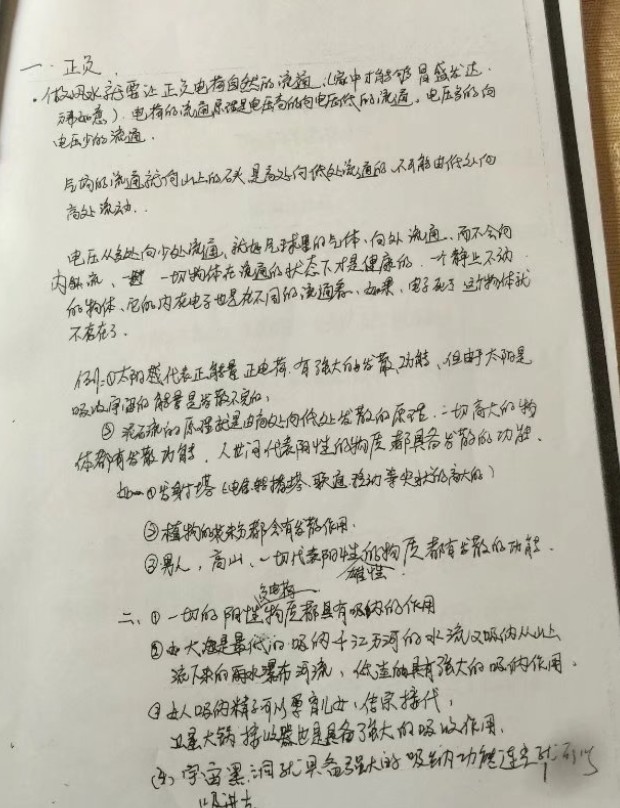 一、正负、
·做风水就要让正负电荷自然的流通,(家中才能够昌盛发达.
万事如意)。电荷的流通原理是电压高的向电压低的流通,电压多的向
电压少的流通.
的流通就向山上的石头是高处向低处流通的.不可能由低处向
高处流动..
电压从多处向少处流通,就好气球里的气体,向外流通,而不会向
内流,一切物体在流通的状态下才是健康的.一个静止不动
的物体,它的内在电子也是在不同的流通着,如果,电子死了这个物体就
不存在了.
例:①太阳代表正能量正电荷.有强大的发散功能,但由于太阳是
吸收宇宙的能量是发散不完的;
②泥石流的原理就是由高处向低处发散的原理.一切高大的物
体都有发散功能.人世间代表阳性的物质都具备发散的功能.
如一①发射塔(电信转播塔、联通移动等尖状的高大的)
②植物的都会有发散作用.
③男人,高山、一切代表阳性的物质都有发散的功能.
雄性
负电荷
二、①一切的阴性物质都具有吸纳的作用
②如大海是最低的吸纳千江万河的水流又吸纳从山上
流下来的雨水瀑布河流,低洼的具有强大的吸纳作用.
③女人吸纳精子可以孕育儿女,传宗接代,
卫星大锅接收器也是具备了强大的吸收作用.
④宇宙黑洞就具备强大的吸纳功能连
吸进去